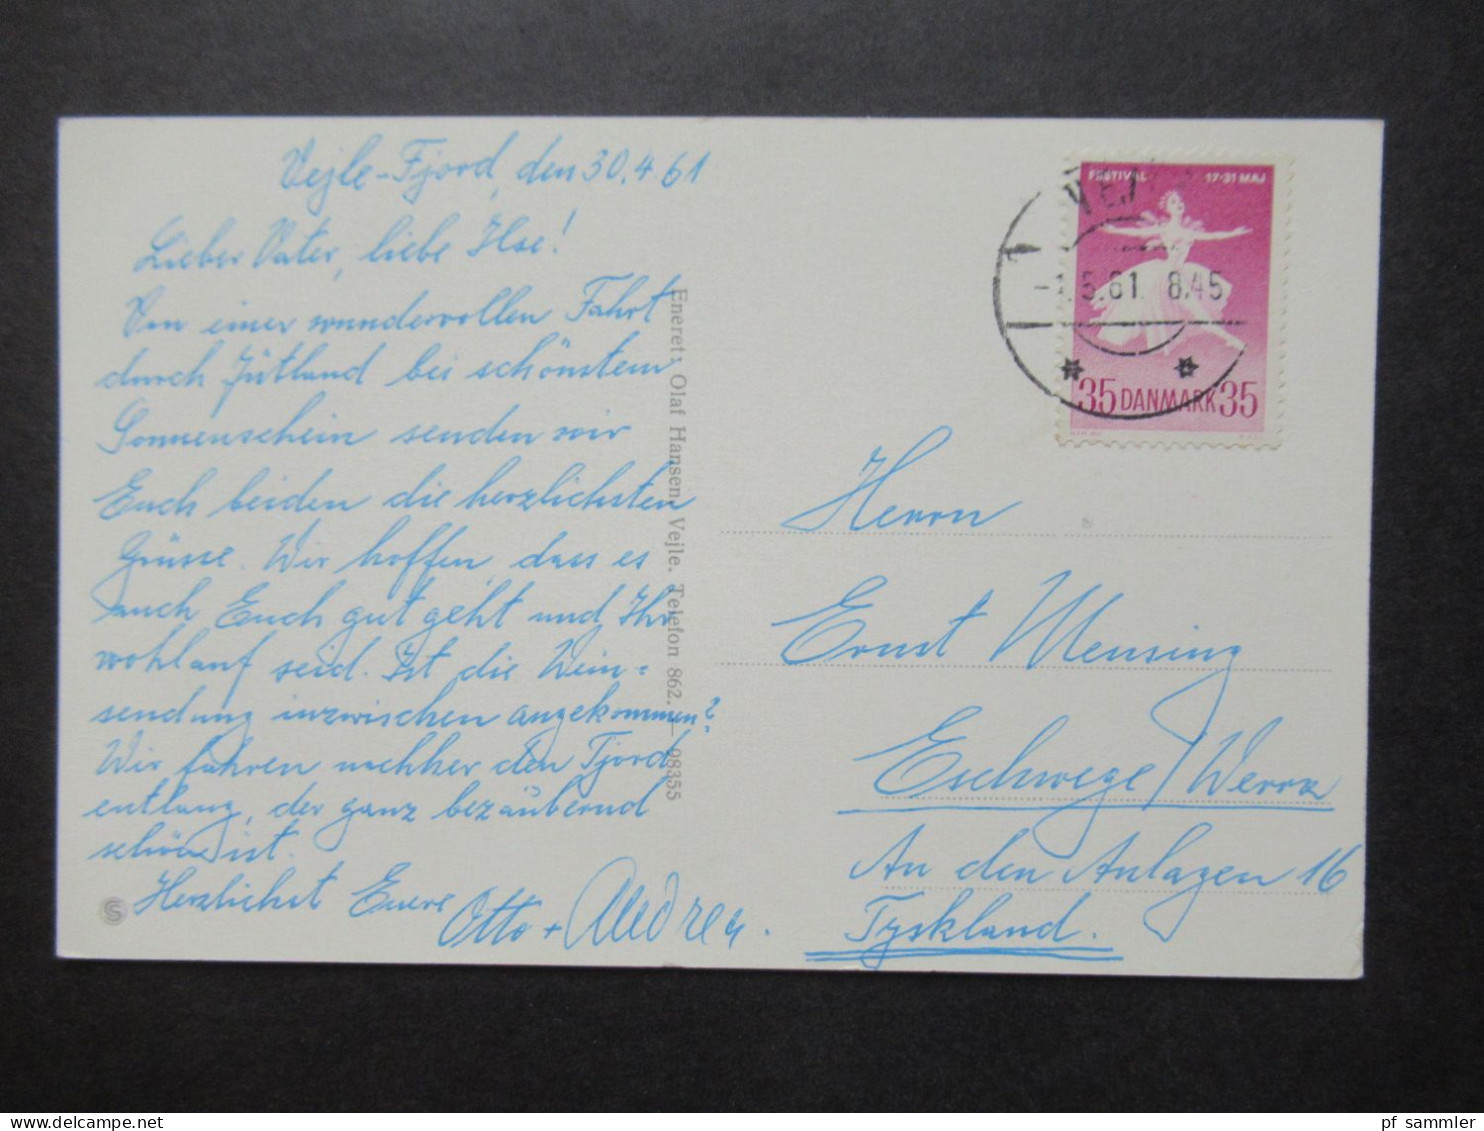 Vejle-Fjord, den 30.4.61
Lieber Vater, liebe Ilse!
Von einer wundervollen Fahrt
durch Jütland bei schönstem
Sonnenschein senden wir
Euch beiden die herzlichsten
Grüsse. Wir hoffen dass es
auch Euch gut geht und Ihr
wohlauf seid. Ist die Wein=
sendung inzwischen angekommen?
Wir fahren nachher den Fjord
entlang, der ganz bezaubernd
schön ist.
Herzlichst Euere Otto + Andrea.
Eneret: Olaf Hansen, Vejle. Telefon 862. — 98355
FESTIVAL 17-31 MAJ
35 DANMARK 35
-1.5.61 8.45
Herrn
Ernst Mensing
Eschwege/Werra
An den Anlagen 16
Tyskland.
pf_sammler